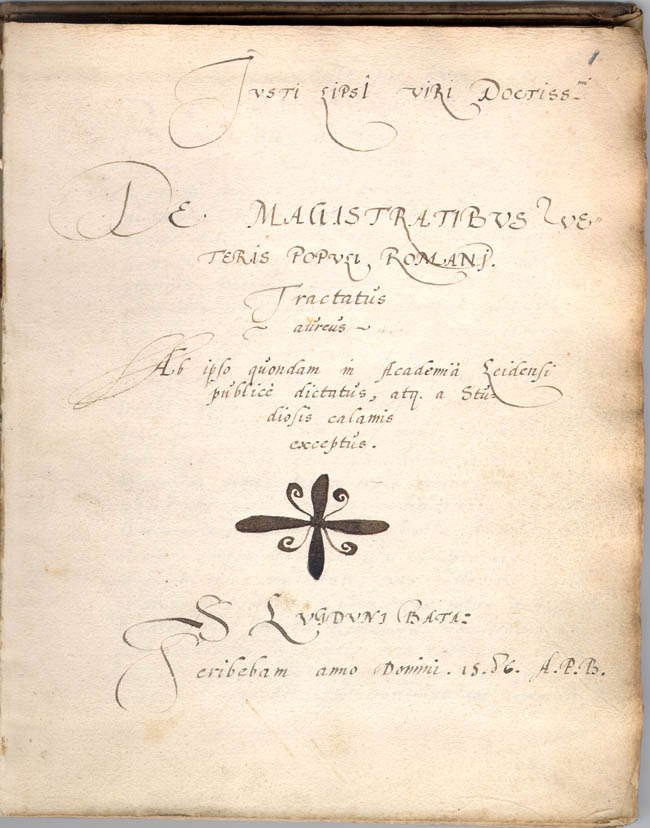 1
Justi Lipsi viri Doctiss.mi
De Magistratibus ve=
teris Populi Romanj.
Tractatus
~ aureus ~
Ab ipso quondam in Academiâ Leidensi
publicè dictatus, atq. a Stu=
diosis calamis
exceptus.
Lugduni Bata:
Scribebam anno Domini. 15.86. A.P.B.